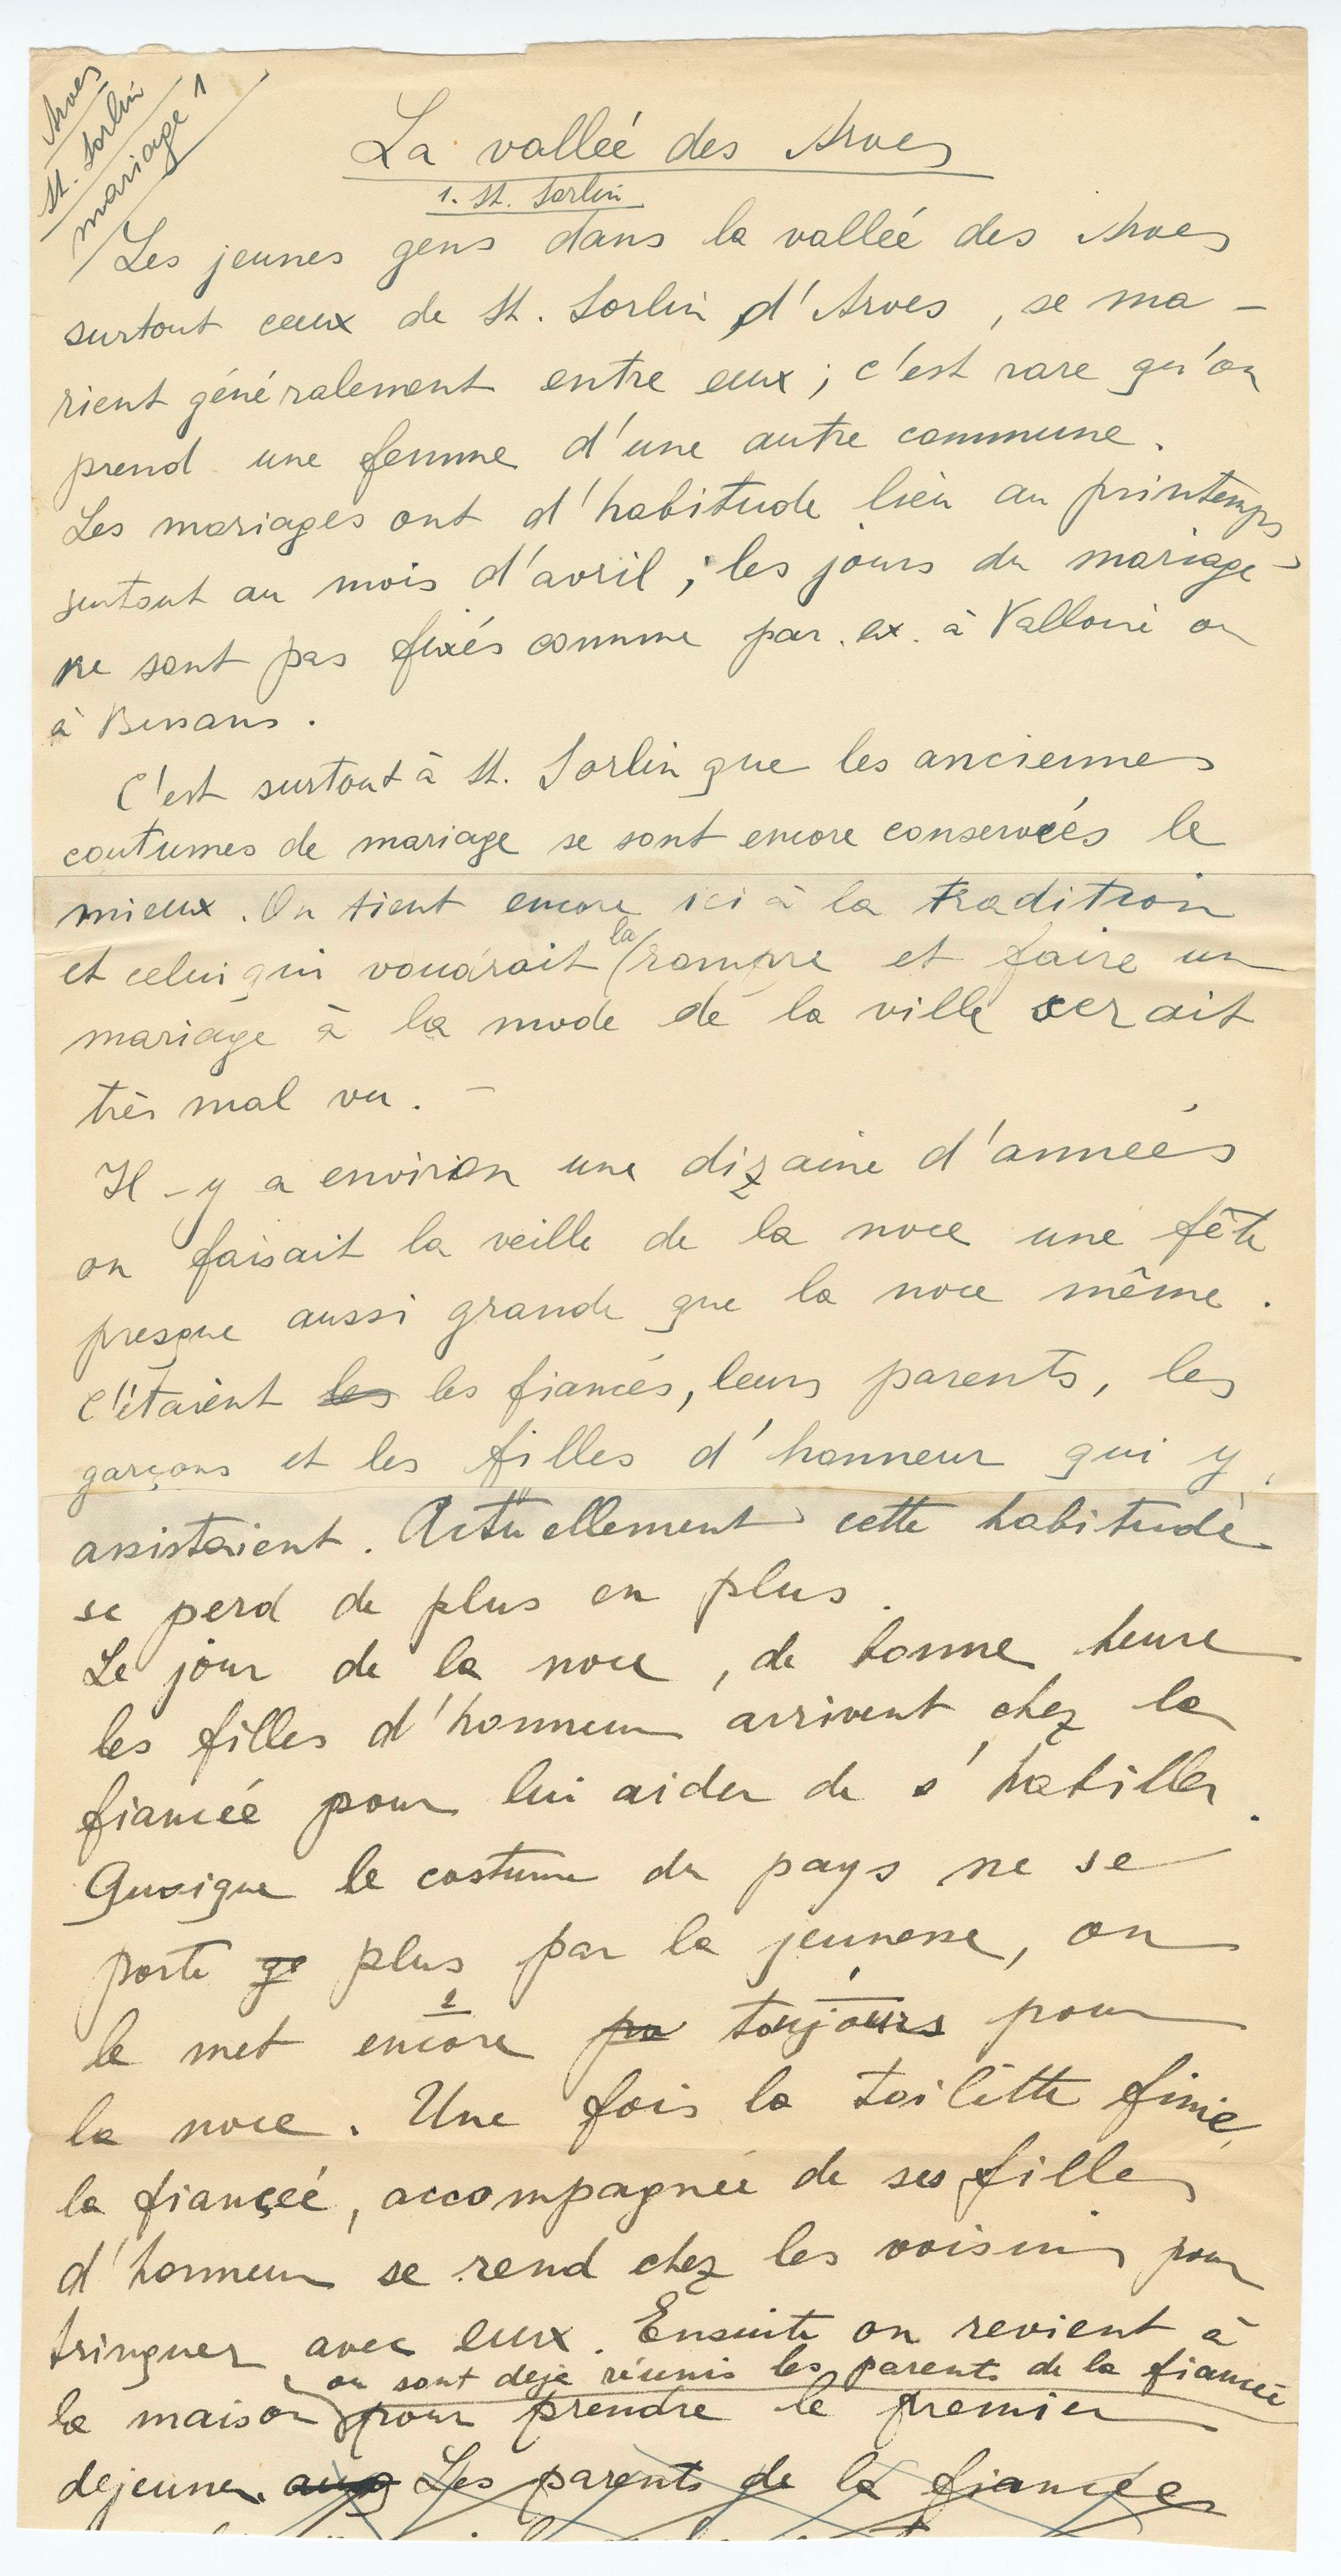 Arves
St. Sorlin
mariage 1
La valleé des Arves
1. St. Sorlin
Les jeunes gens dans la valleé des Arves
surtout ceux de St. Sorlin d'Arves, se ma-
rient généralement entre eux; c'est rare qu'on
prend une femme d'une autre commune.
Les mariages ont d'habitude lieu au printemps,
surtout au mois d'avril; les jours du mariage
ne sont pas fixés comme par. ex. à Valloire ou
à Bessans.
C'est surtout à St. Sorlin que les anciennes
coutumes de mariage se sont encore conserveés le
mieux. On tient encore ici à la tradition
et celui qui voudrait la rompre et faire un
mariage à la mode de la ville serait
très mal vu. -
Il-y a environ une dizaine d'anneés
on faisait la veille de la noce une fête
presque aussi grande que la noce même.
C'étaient les les fiancés, leurs parents, les
garçons et les filles d'honneur qui y
assistaient. Actuellement cette habitude
se perd de plus en plus.
Le jour de la noce, de bonne heure
les filles d'honneur arrivent chez la
fianceé pour lui aider de s'habiller.
Quoique le costume du pays ne se
porte plus par la jeunesse, on
2 1
le met encore toujours pour
la noce. Une fois la toilette finie,
la fianceé, accompagneé de ses filles
d'honneur se rend chez les voisins pour
trinquer avec eux. Ensuite on revient à
ou sont deja réunis les parents de la fianceé
la maison pour prendre le premier
dejeuner. Les parents de la fianceé